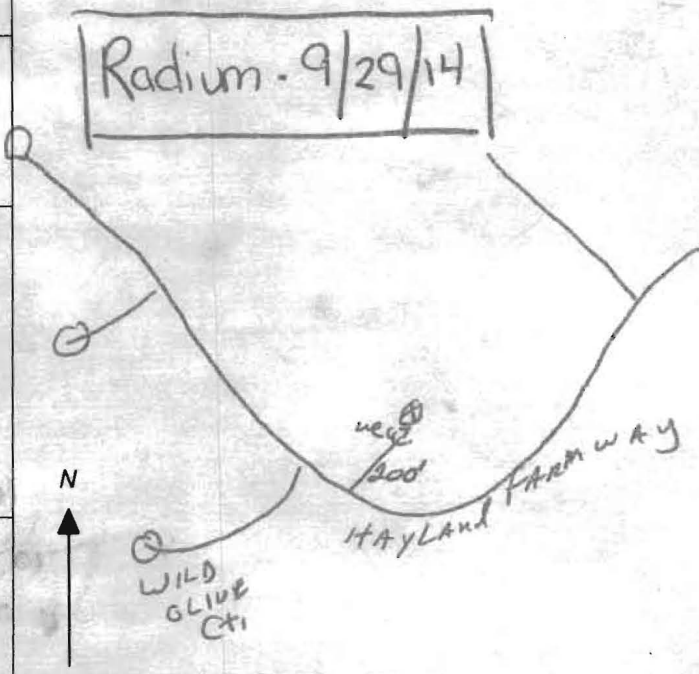 Radium - 9/29/14
200'
HAYLAND FARM WAY
N
WILD
OLIVE
Ct.